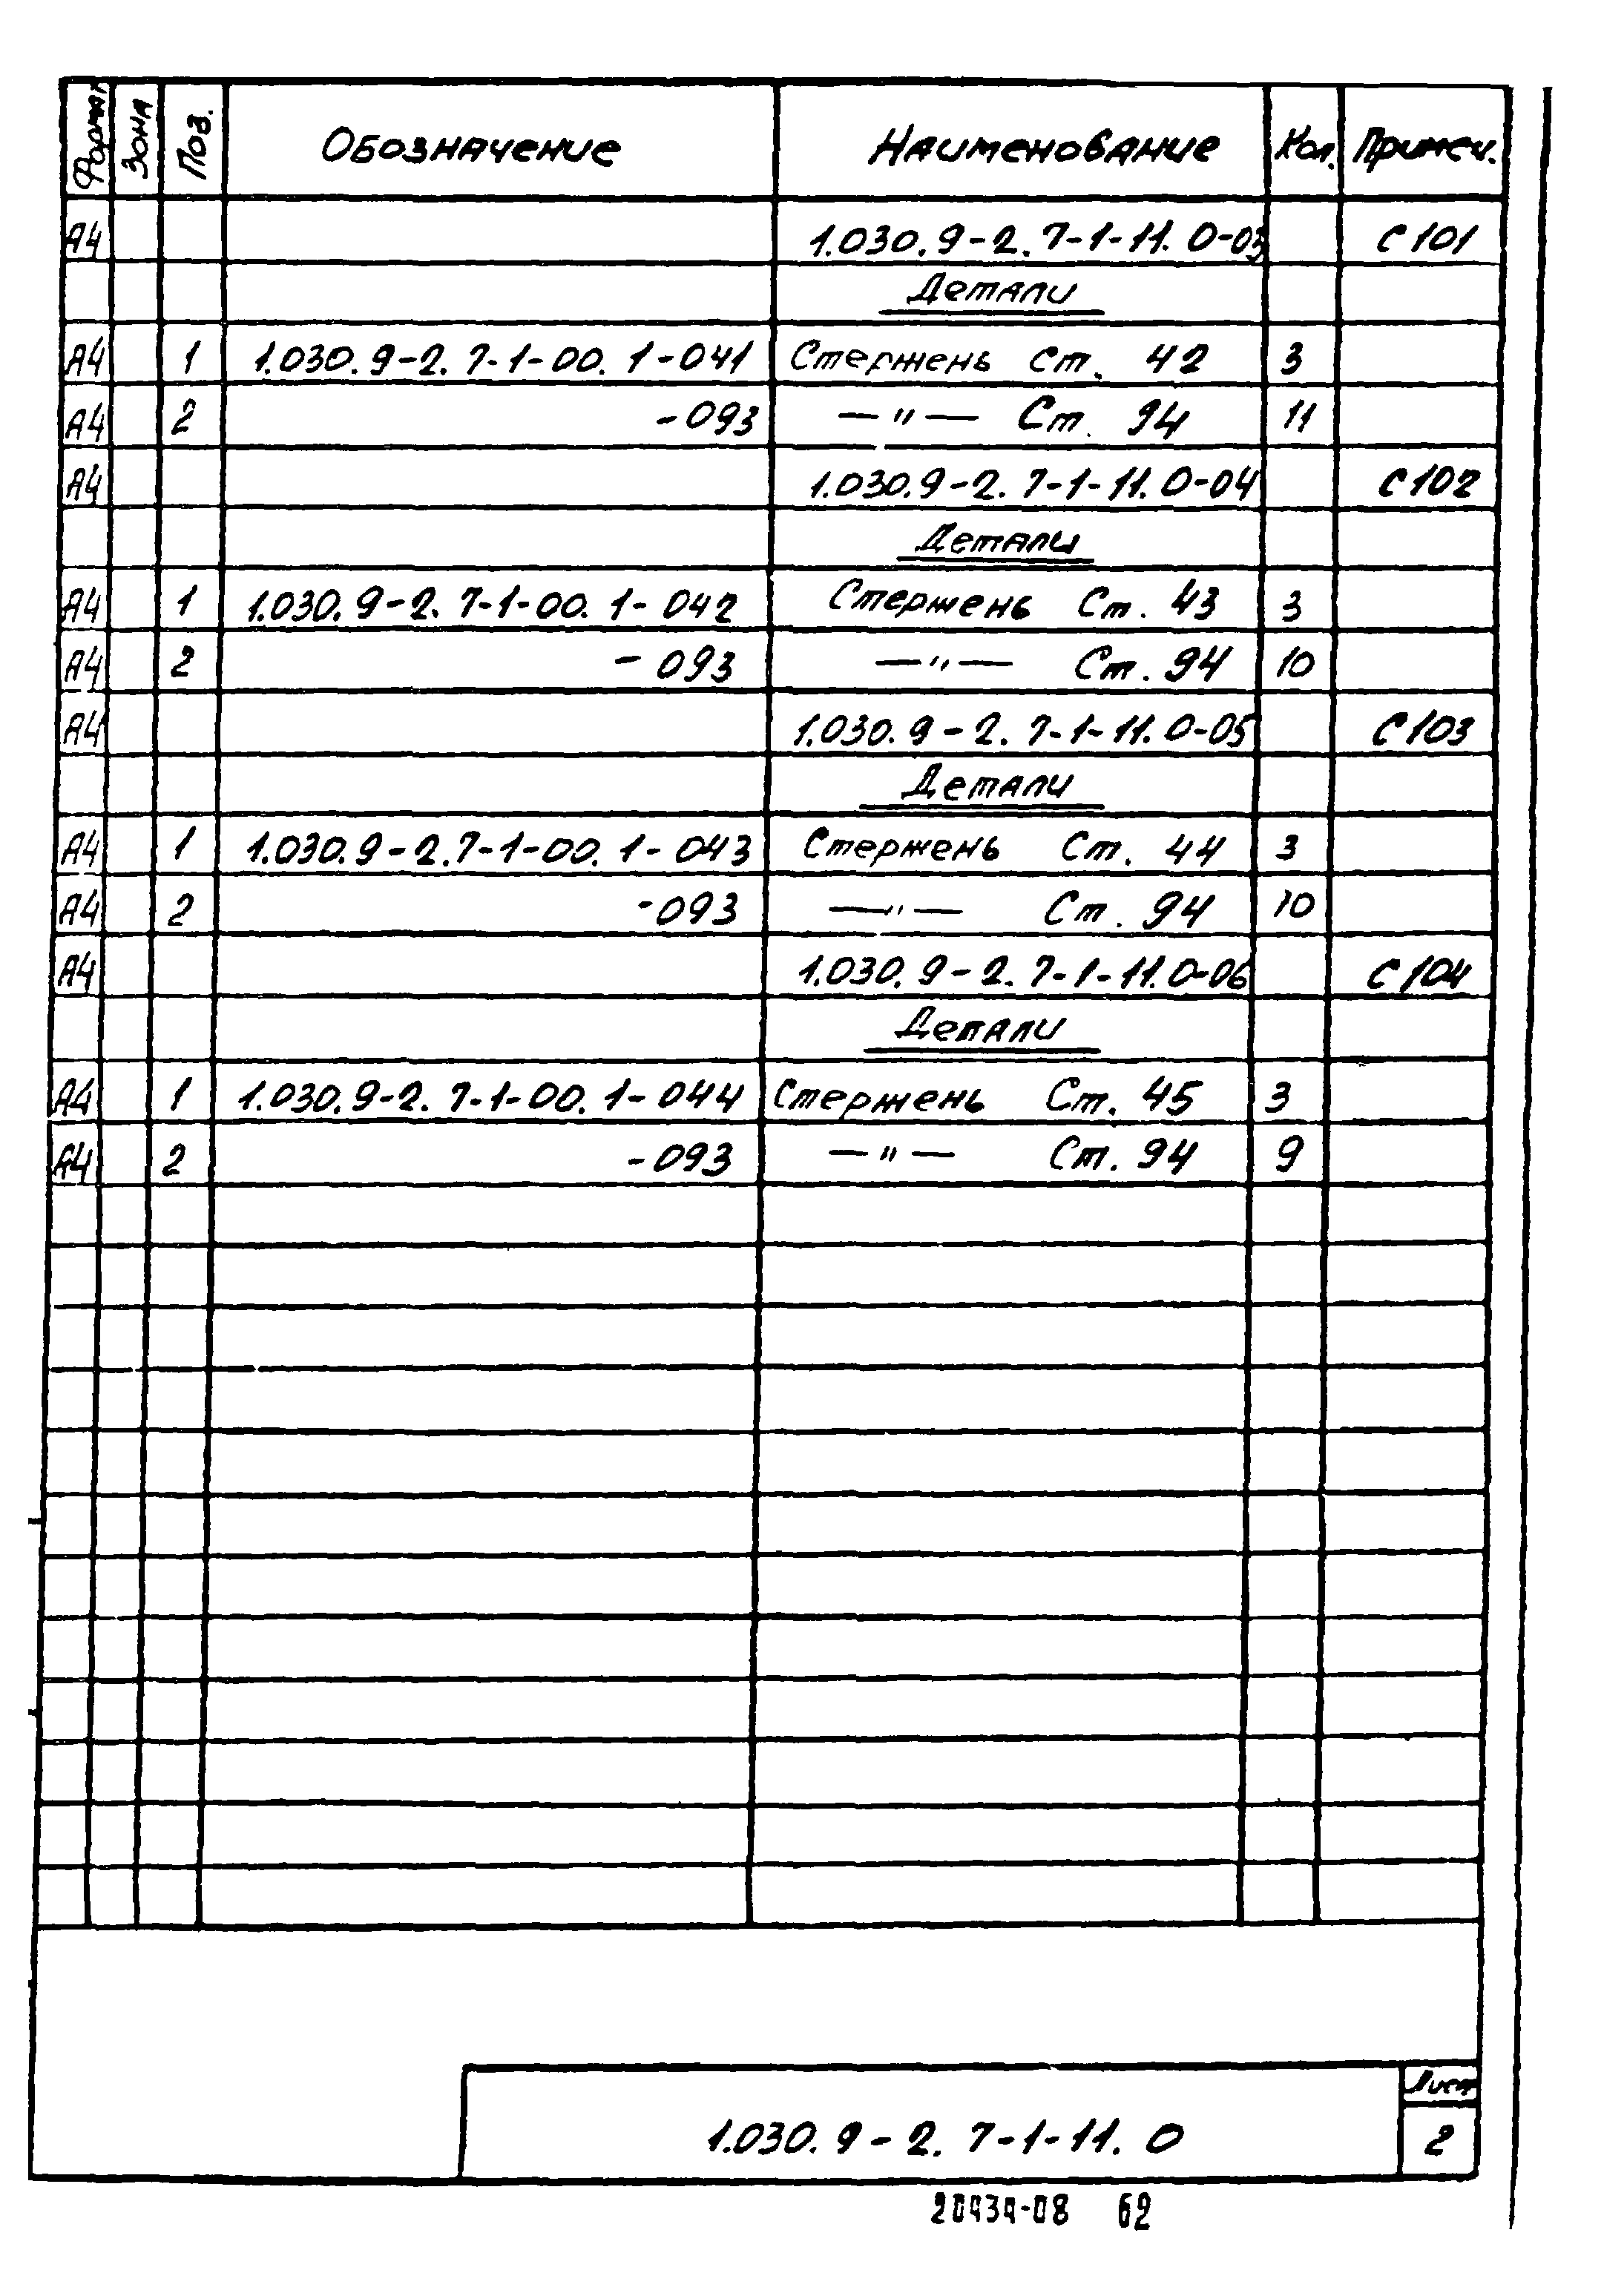 Формат Зона Поз. Обозначение Наименование Кол. Примеч.
А4 1.030.9-2.7-1-11.0-03 С101
Детали
А4 1 1.030.9-2.7-1-00.1-041 Стержень Ст. 42 3
А4 2 -093 — " — Ст. 94 11
А4 1.030.9-2.7-1-11.0-04 С102
Детали
А4 1 1.030.9-2.7-1-00.1-042 Стержень Ст. 43 3
А4 2 -093 — " — Ст. 94 10
А4 1.030.9-2.7-1-11.0-05 С103
Детали
А4 1 1.030.9-2.7-1-00.1-043 Стержень Ст. 44 3
А4 2 -093 — " — Ст. 94 10
А4 1.030.9-2.7-1-11.0-06 С104
Детали
А4 1 1.030.9-2.7-1-00.1-044 Стержень Ст. 45 3
А4 2 -093 — " — Ст. 94 9
1.030.9-2.7-1-11.0
Лист
2
20434-08 62